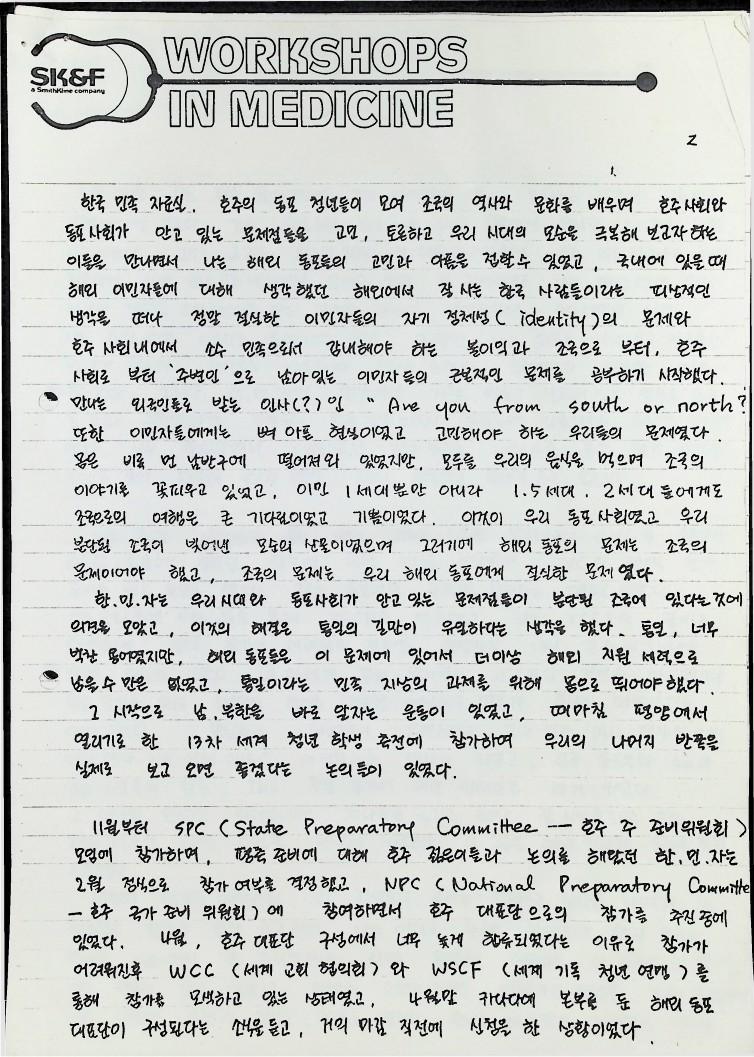 SK&F
a SmithKline company
WORKSHOPS
IN MEDICINE
2
한국 민족 자료실. 호주의 동포 청년들이 모여 조국의 역사와 문화를 배우며 호주사회와
동포사회가 안고 있는 문제점들을 고민, 토론하고 우리 시대의 모순을 극복해 보고자 하는
이들을 만나면서 나는 해외 동포들의 고민과 아픔을 접할수 있었고, 국내에 있을때
해외 이민자들에 대해 생각했던 해외에서 잘 사는 한국 사람들이라는 피상적인
생각을 떠나 정말 절실한 이민자들의 자기 정체성(identity)의 문제와
호주 사회내에서 소수 민족으로서 감내해야 하는 불이익과 조국으로 부터, 호주
사회로 부터 '주변인'으로 남아있는 이민자들의 근본적인 문제를 공부하기 시작했다.
만나는 외국인들로 받는 인사(?)인 "Are you from south or north?
또한 이민자들에게는 뼈 아픈 현실이었고 고민해야 하는 우리들의 문제였다.
몸은 비록 먼 남반구에 떨어져 와 있었지만, 모두들 우리의 음식을 먹으며 조국의
이야기를 꽃피우고 있었고, 이민 1세대뿐만 아니라 1.5세대, 2세대들에게도
조국으로의 여행은 큰 기다림이었고 기쁨이었다. 이것이 우리 동포사회였고 우리
분단된 조국이 빚어낸 모순의 산물이었으며 그러기에 해외 동포의 문제는 조국의
문제이어야 했고, 조국의 문제는 우리 해외 동포에게 절실한 문제였다.
한.민.자는 우리시대와 동포사회가 안고 있는 문제점들이 분단된 조국에 있다는것에
의견을 모았고, 이것의 해결은 통일의 길만이 유일하다는 생각을 했다. 통일, 너무
벅찬 용어였지만, 해외 동포들은 이 문제에 있어서 더이상 해외 지원 세력으로
남을수 만은 없었고, 통일이라는 민족 지상의 과제를 위해 몸으로 뛰어야 했다.
그 시작으로 남.북한을 바로 알자는 운동이 있었고, 때마침 평양에서
열리기로 한 13차 세계 청년 학생 축전에 참가하여 우리의 나머지 반쪽을
실제로 보고 오면 좋겠다는 논의들이 있었다.
11월부터 SPC (State Preparatory Committee -- 호주 주 준비위원회)
모임에 참가하며, 평축 준비에 대해 호주 젊은이들과 논의를 해왔던 한.민.자는
2월 정식으로 참가 여부를 결정했고, NPC (National Preparatory Committe
- 호주 국가 준비 위원회)에 참여하면서 호주 대표단으로의 참가를 추진 중에
있었다. 4월, 호주 대표단 구성에서 너무 늦게 합류되었다는 이유로 참가가
어려워진후 WCC (세계 교회 협의회)와 WSCF (세계 기독 청년 연맹)를
통해 참가를 모색하고 있는 상태였고, 4월말 카나다에 본부를 둔 해외 동포
대표단이 구성된다는 소식을 듣고, 거의 마감 직전에 신청을 한 상황이었다.